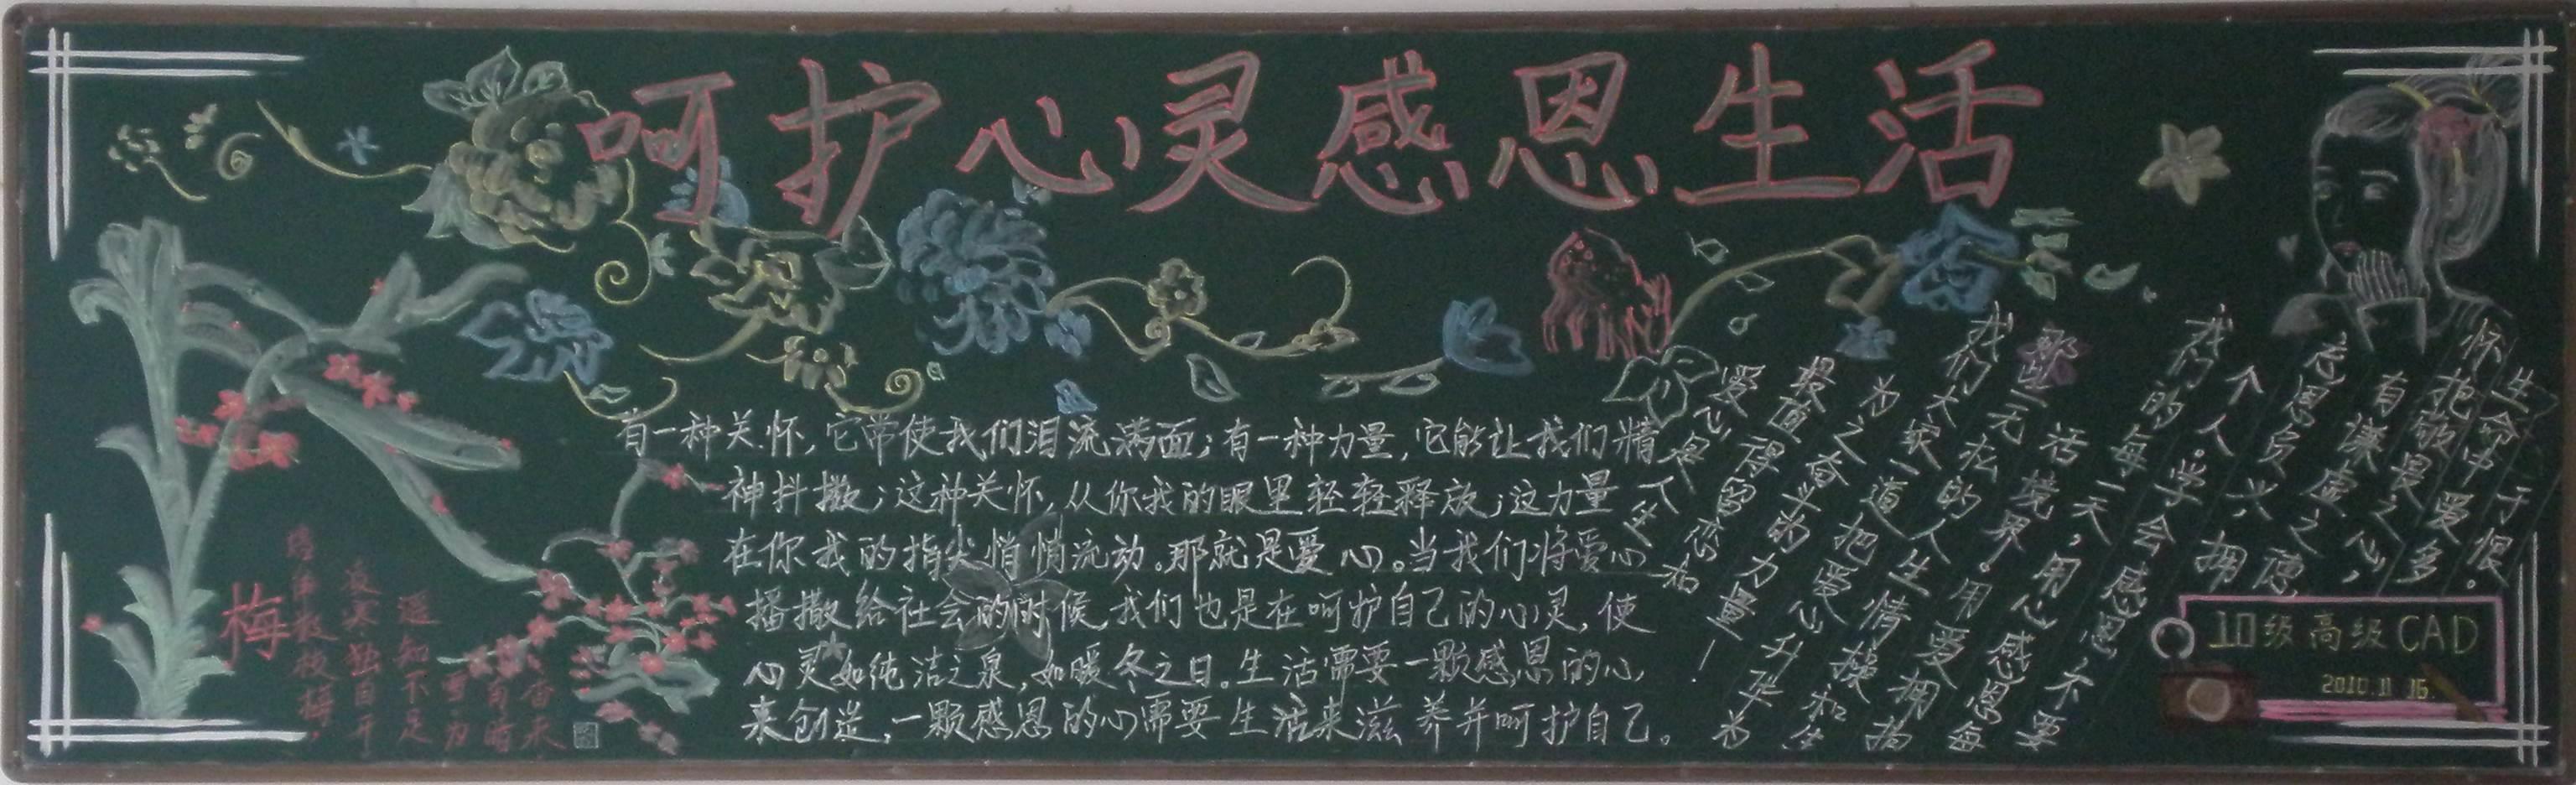 呵护心灵感恩生活
有一种关怀,它常使我们泪流满面;有一种力量,它能让我们精
神抖擞;这种关怀,从你我的眼里轻轻释放;这力量
在你我的指尖悄悄流动。那就是爱心。当我们将爱心
播撒给社会的时候,我们也是在呵护自己的心灵,使
心灵如纯洁之泉,如暖冬之日。生活需要一颗感恩的心
来创造,一颗感恩的心需要生活来滋养并呵护自己。
爱心是人生
最值得留恋
为之奋斗的力量—
我们大家一道把爱心升华为
一无私的人生情操和生
活境界。用爱拥抱
我们的每一天,用心感恩每
个人。学会感恩不要
忘恩负义 拥
有谦虚之德
怀抱敬畏之心,
生命中爱多
于恨。
梅
墙角数枝梅,
凌寒独自开
遥知不是
为
有暗
香来
10级高级CAD
2010.11.16.